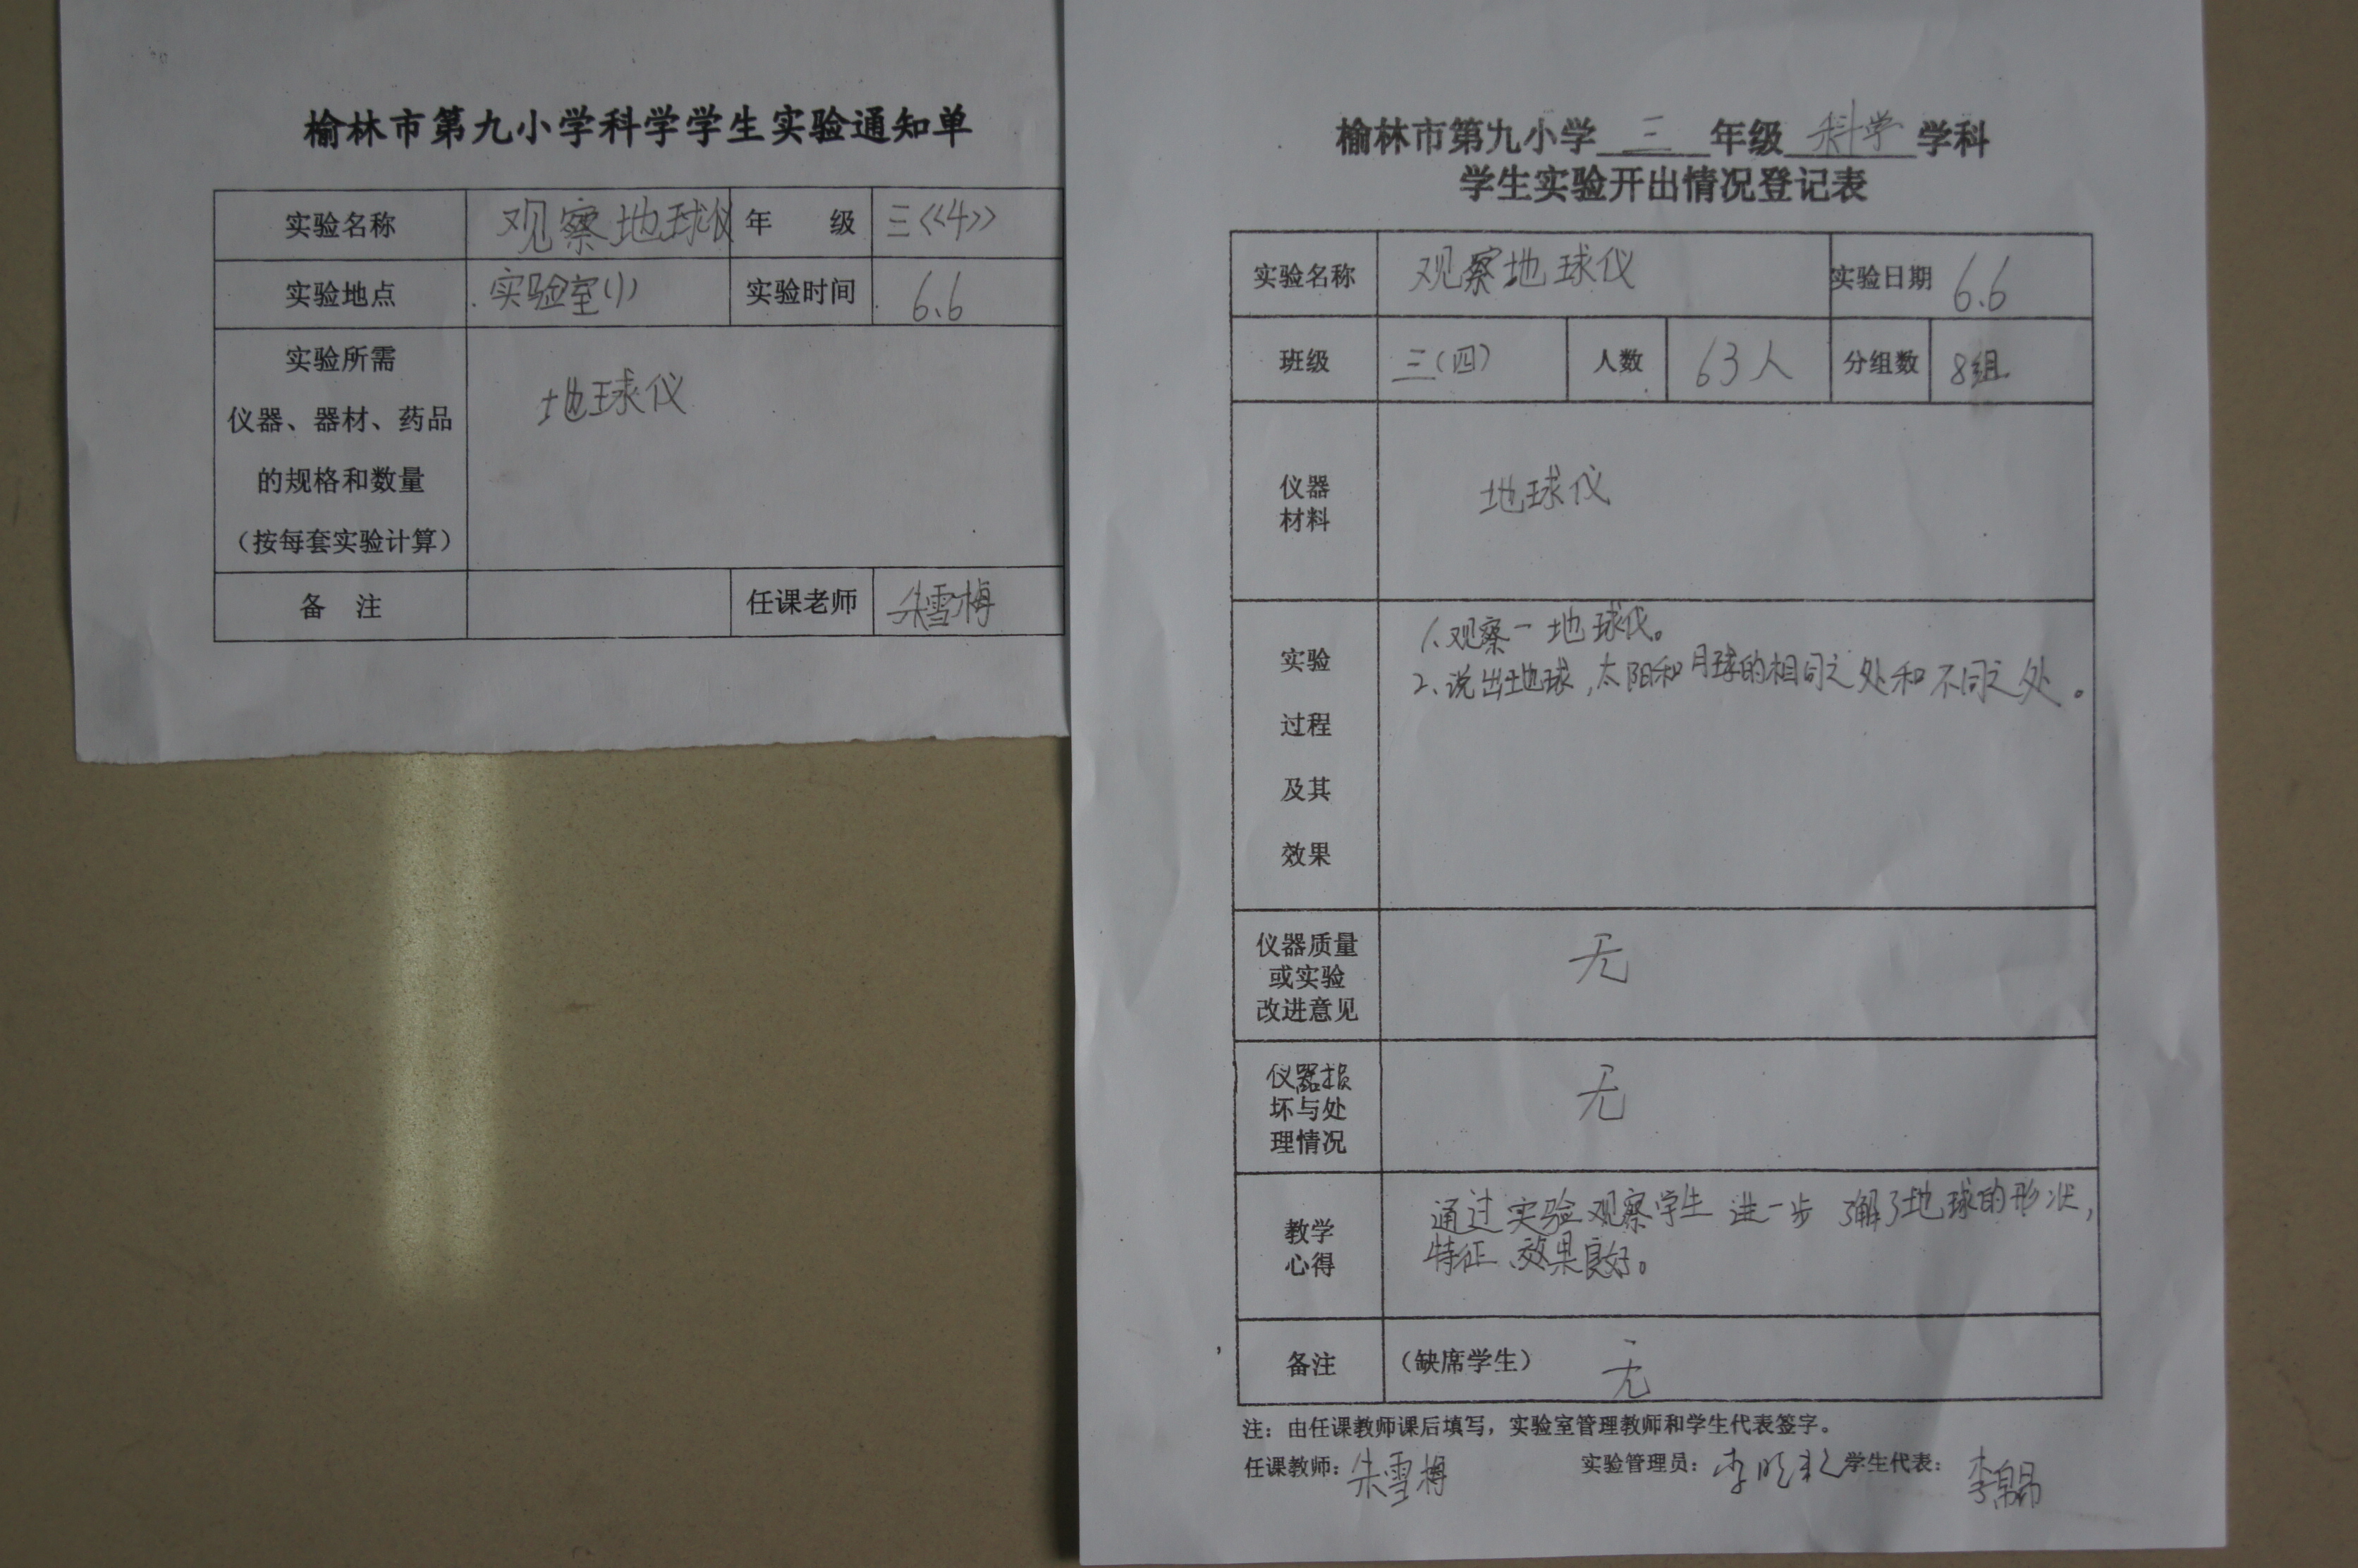 榆林市第九小学科学学生实验通知单
实验名称 观察地球仪 年 级 三<<4>>
实验地点 实验室(1) 实验时间 6.6
实验所需
仪器、器材、药品
的规格和数量
（按每套实验计算）
地球仪
备 注 任课老师 朱雪梅
榆林市第九小学 三 年级 科学 学科
学生实验开出情况登记表
实验名称 观察地球仪 实验日期 6.6
班级 三(四) 人数 63人 分组数 8组
仪器
材料
地球仪
实验
过程
及其
效果
1、观察一地球仪。
2、说出地球,太阳和月球的相同之处和不同之处。
仪器质量
或实验
改进意见
无
仪器损
坏与处
理情况
无
教学
心得
通过实验观察学生进一步了解了地球的形状,
特征、效果良好。
备注 （缺席学生） 无
注：由任课教师课后填写，实验室管理教师和学生代表签字。
任课教师：朱雪梅 实验管理员：李 学生代表：李